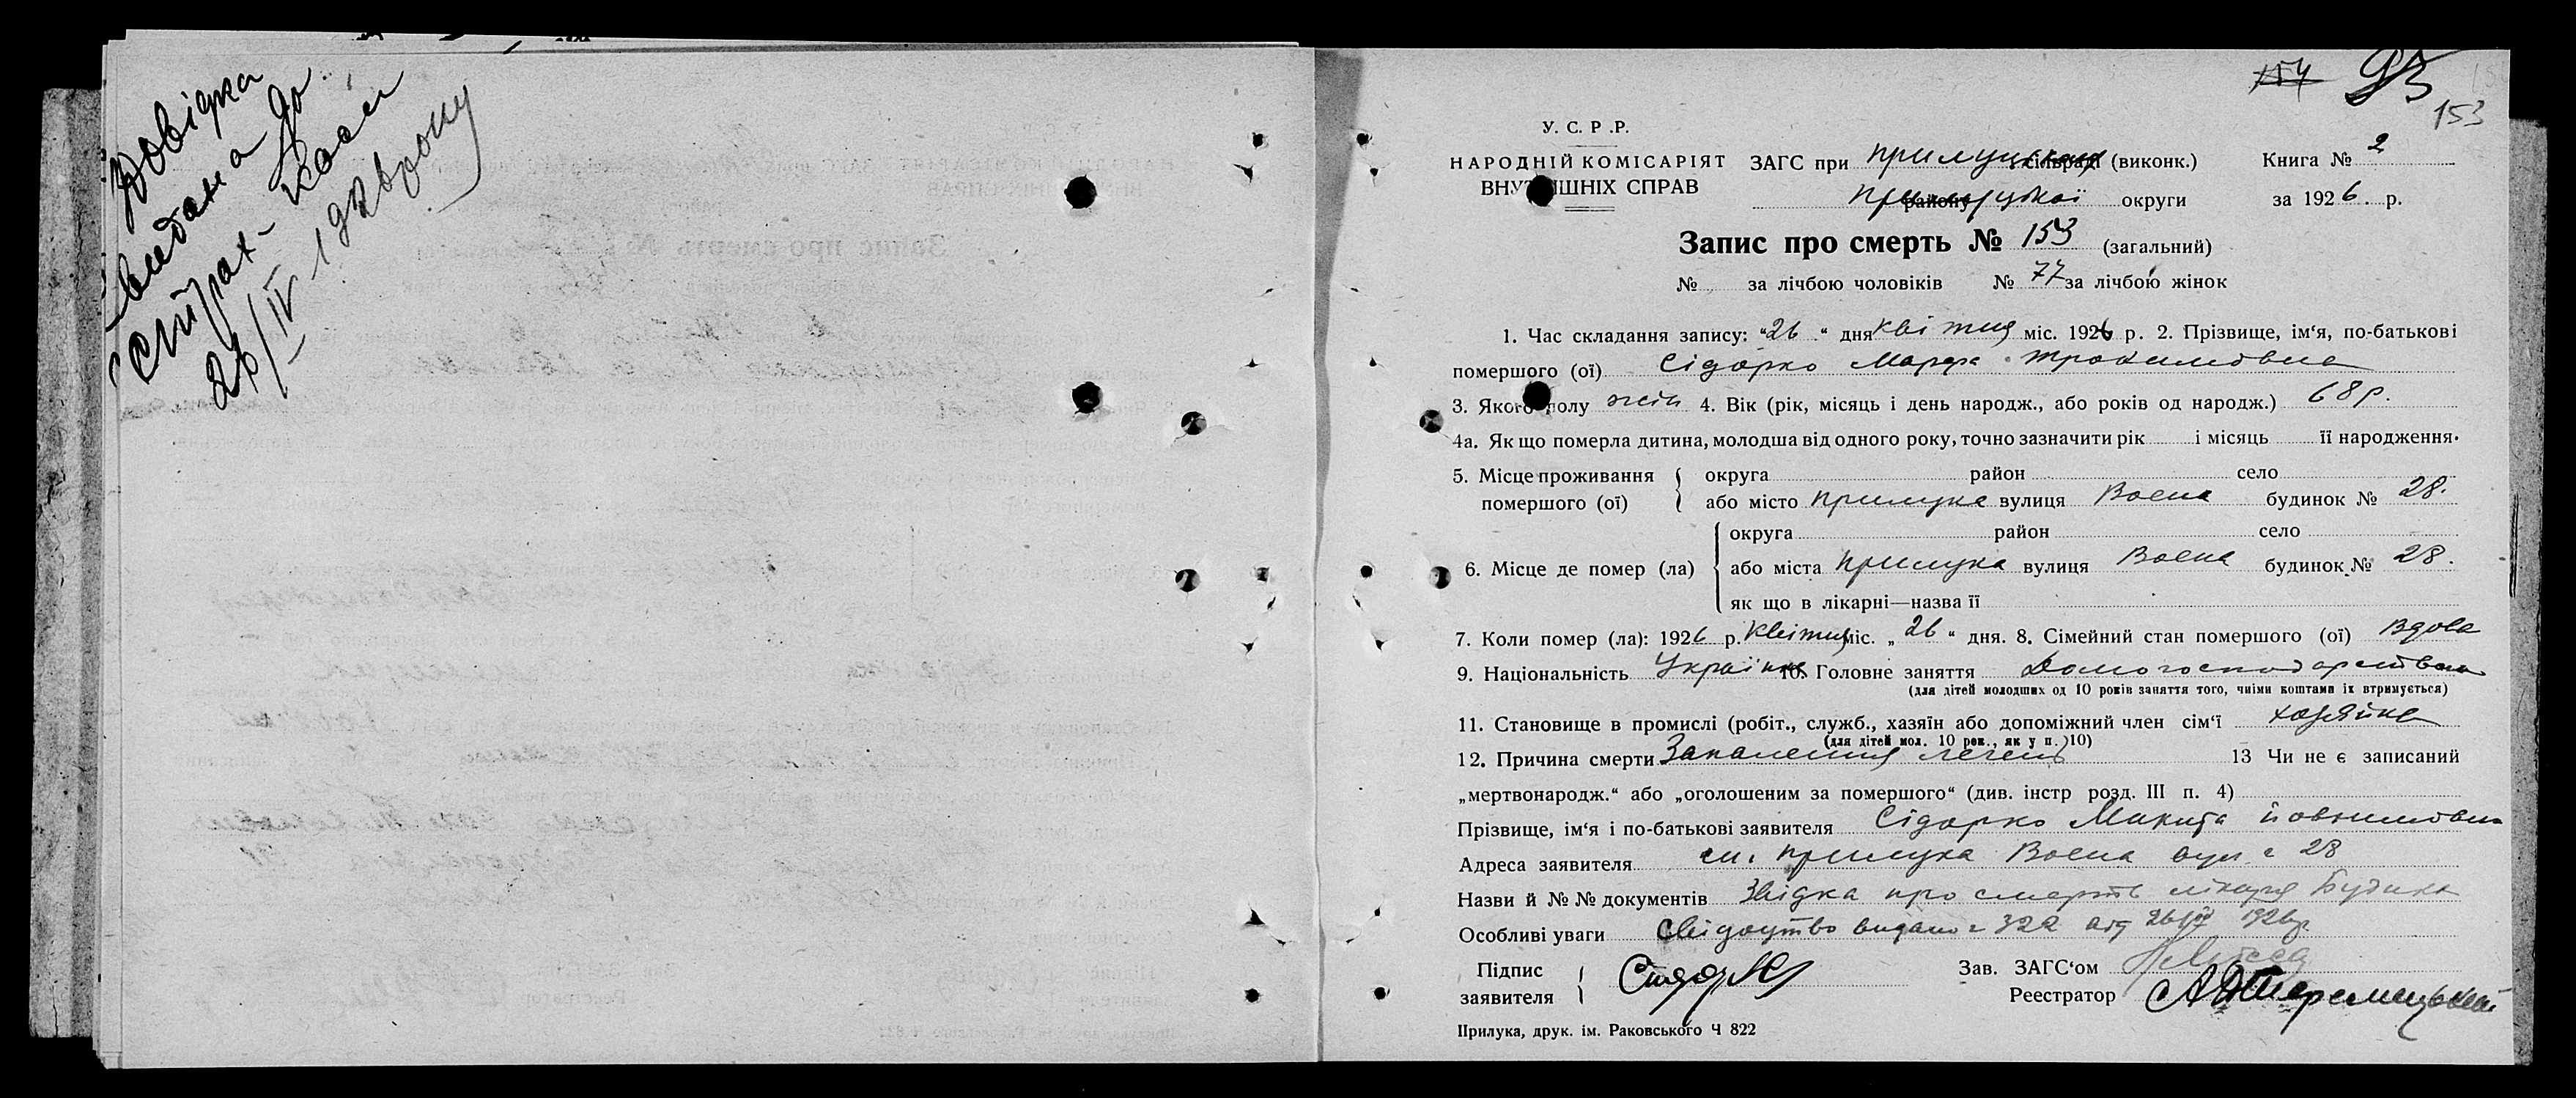 Довідка
видана до
страх- каси
26/IV
154 95
153
У. С. Р .Р.
НАРОДНІЙ КОМІСАРІЯТ
ВНУТРІШНІХ СПРАВ
ЗАГС при прилуцьк. сільраді (виконк.)
Книга № 2
району прилуцької округи
за 1926. р.
Запис про смерть № 153 (загальний)
№ за лічбою чоловіків № 77 за лічбою жінок
1. Час складання запису: "26" дня квітня міс. 1926 р. 2. Прізвище, ім'я, по-батькові
помершого (ої) Сідорко Марфа Трохимовна
3. Якого полу жін 4. Вік (рік, місяць і день народж., або років од народж.) 68 р.
4а. Як що померла дитина, молодша від одного року, точно зазначити рік і місяць її народження.
5. Місце проживання помершого (ої) { округа район село
або місто Прилука вулиця Воена будинок № 28.
6. Місце де помер (ла) { округа район село
або міста Прилука вулиця Воена будинок № 28.
як що в лікарні—назва її
7. Коли помер (ла): 1926 р. квітня міс. „26" дня. 8. Сімейний стан помершого (ої) вдова
9. Національність Українка 10. Головне заняття Домогосподарством
(для дітей молодших од 10 років заняття того, чиїми коштами їх втримується)
11. Становище в промислі (робіт., служб., хазяїн або допоміжний член сім'ї хазяйка
(для дітей мол. 10 рок., як у п. 10)
12. Причина смерти Запалення легень 13 Чи не є записаний
„мертвонародж." або „оголошеним за помершого" (див. інстр розд. III п. 4)
Прізвище, ім'я і по-батькові заявителя Сідорко Микита
Адреса заявителя м. Прилука Воена вул. 28
Назви й № № документів Звідка про смерть лікаря
Особливі уваги Свідоцтво видано 322 від 26/IV 1926р.
Підпис заявителя {
Зав. ЗАГС'ом
Реестратор
Прилука, друк. ім. Раковського Ч 822